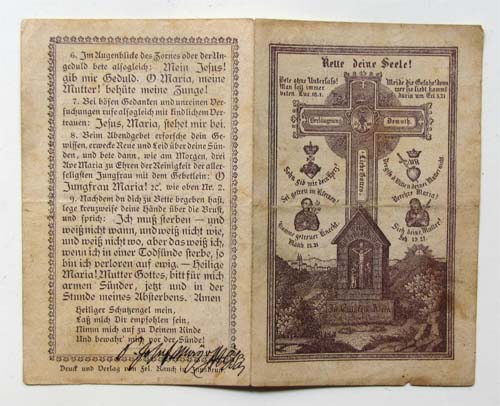 6. Im Augenblicke des Zornes oder der Un-
geduld bete alsogleich: Mein Jesus!
gib mir Geduld. O Maria, meine
Mutter! behüte meine Zunge!
7. Bei bösen Gedanken und unreinen Ver-
suchungen rufe alsogleich mit kindlichem Ver-
trauen: Jesus, Maria, stehet mir bei.
8. Beim Abendgebet erforsche dein Ge-
wissen, erwecke Reue und Leid über deine Sün-
den, und bete dann, wie am Morgen, drei
Ave Maria zu Ehren der Reinigkeit der aller-
seligsten Jungfrau mit dem Gebetlein: O
Jungfrau Maria! ꝛc. wie oben Nr. 2.
9. Nachdem du dich zu Bette begeben hast,
lege kreuzweise deine Hände über die Brust,
und sprich: Ich muß sterben — und
weiß nicht wann, und weiß nicht wie,
und weiß nicht wo, aber das weiß ich,
wenn ich in einer Todsünde sterbe, so
bin ich verloren auf ewig. — Heilige
Maria! Mutter Gottes, bitt für mich
armen Sünder, jetzt und in der
Stunde meines Absterbens. Amen
Heiliger Schutzengel mein,
Laß mich Dir empfohlen sein,
Nimm mich auf zu Deinem Kinde
Und bewahr' mich vor der Sünde!
Druck und Verlag von Fel. Rauch in Innsbruck.
Rette deine Seele!
Bete ohne Unterlaß!
Man soll immer
beten. Luc. 18.1.
Meide die Gefahr! denn
wer sie liebt kommt
darin um
Demuth.
Sei getreu im Kleinen!
Matth. 25.21
Verehre Maria!
Sieh deine Mutter!
Joh 19.27.